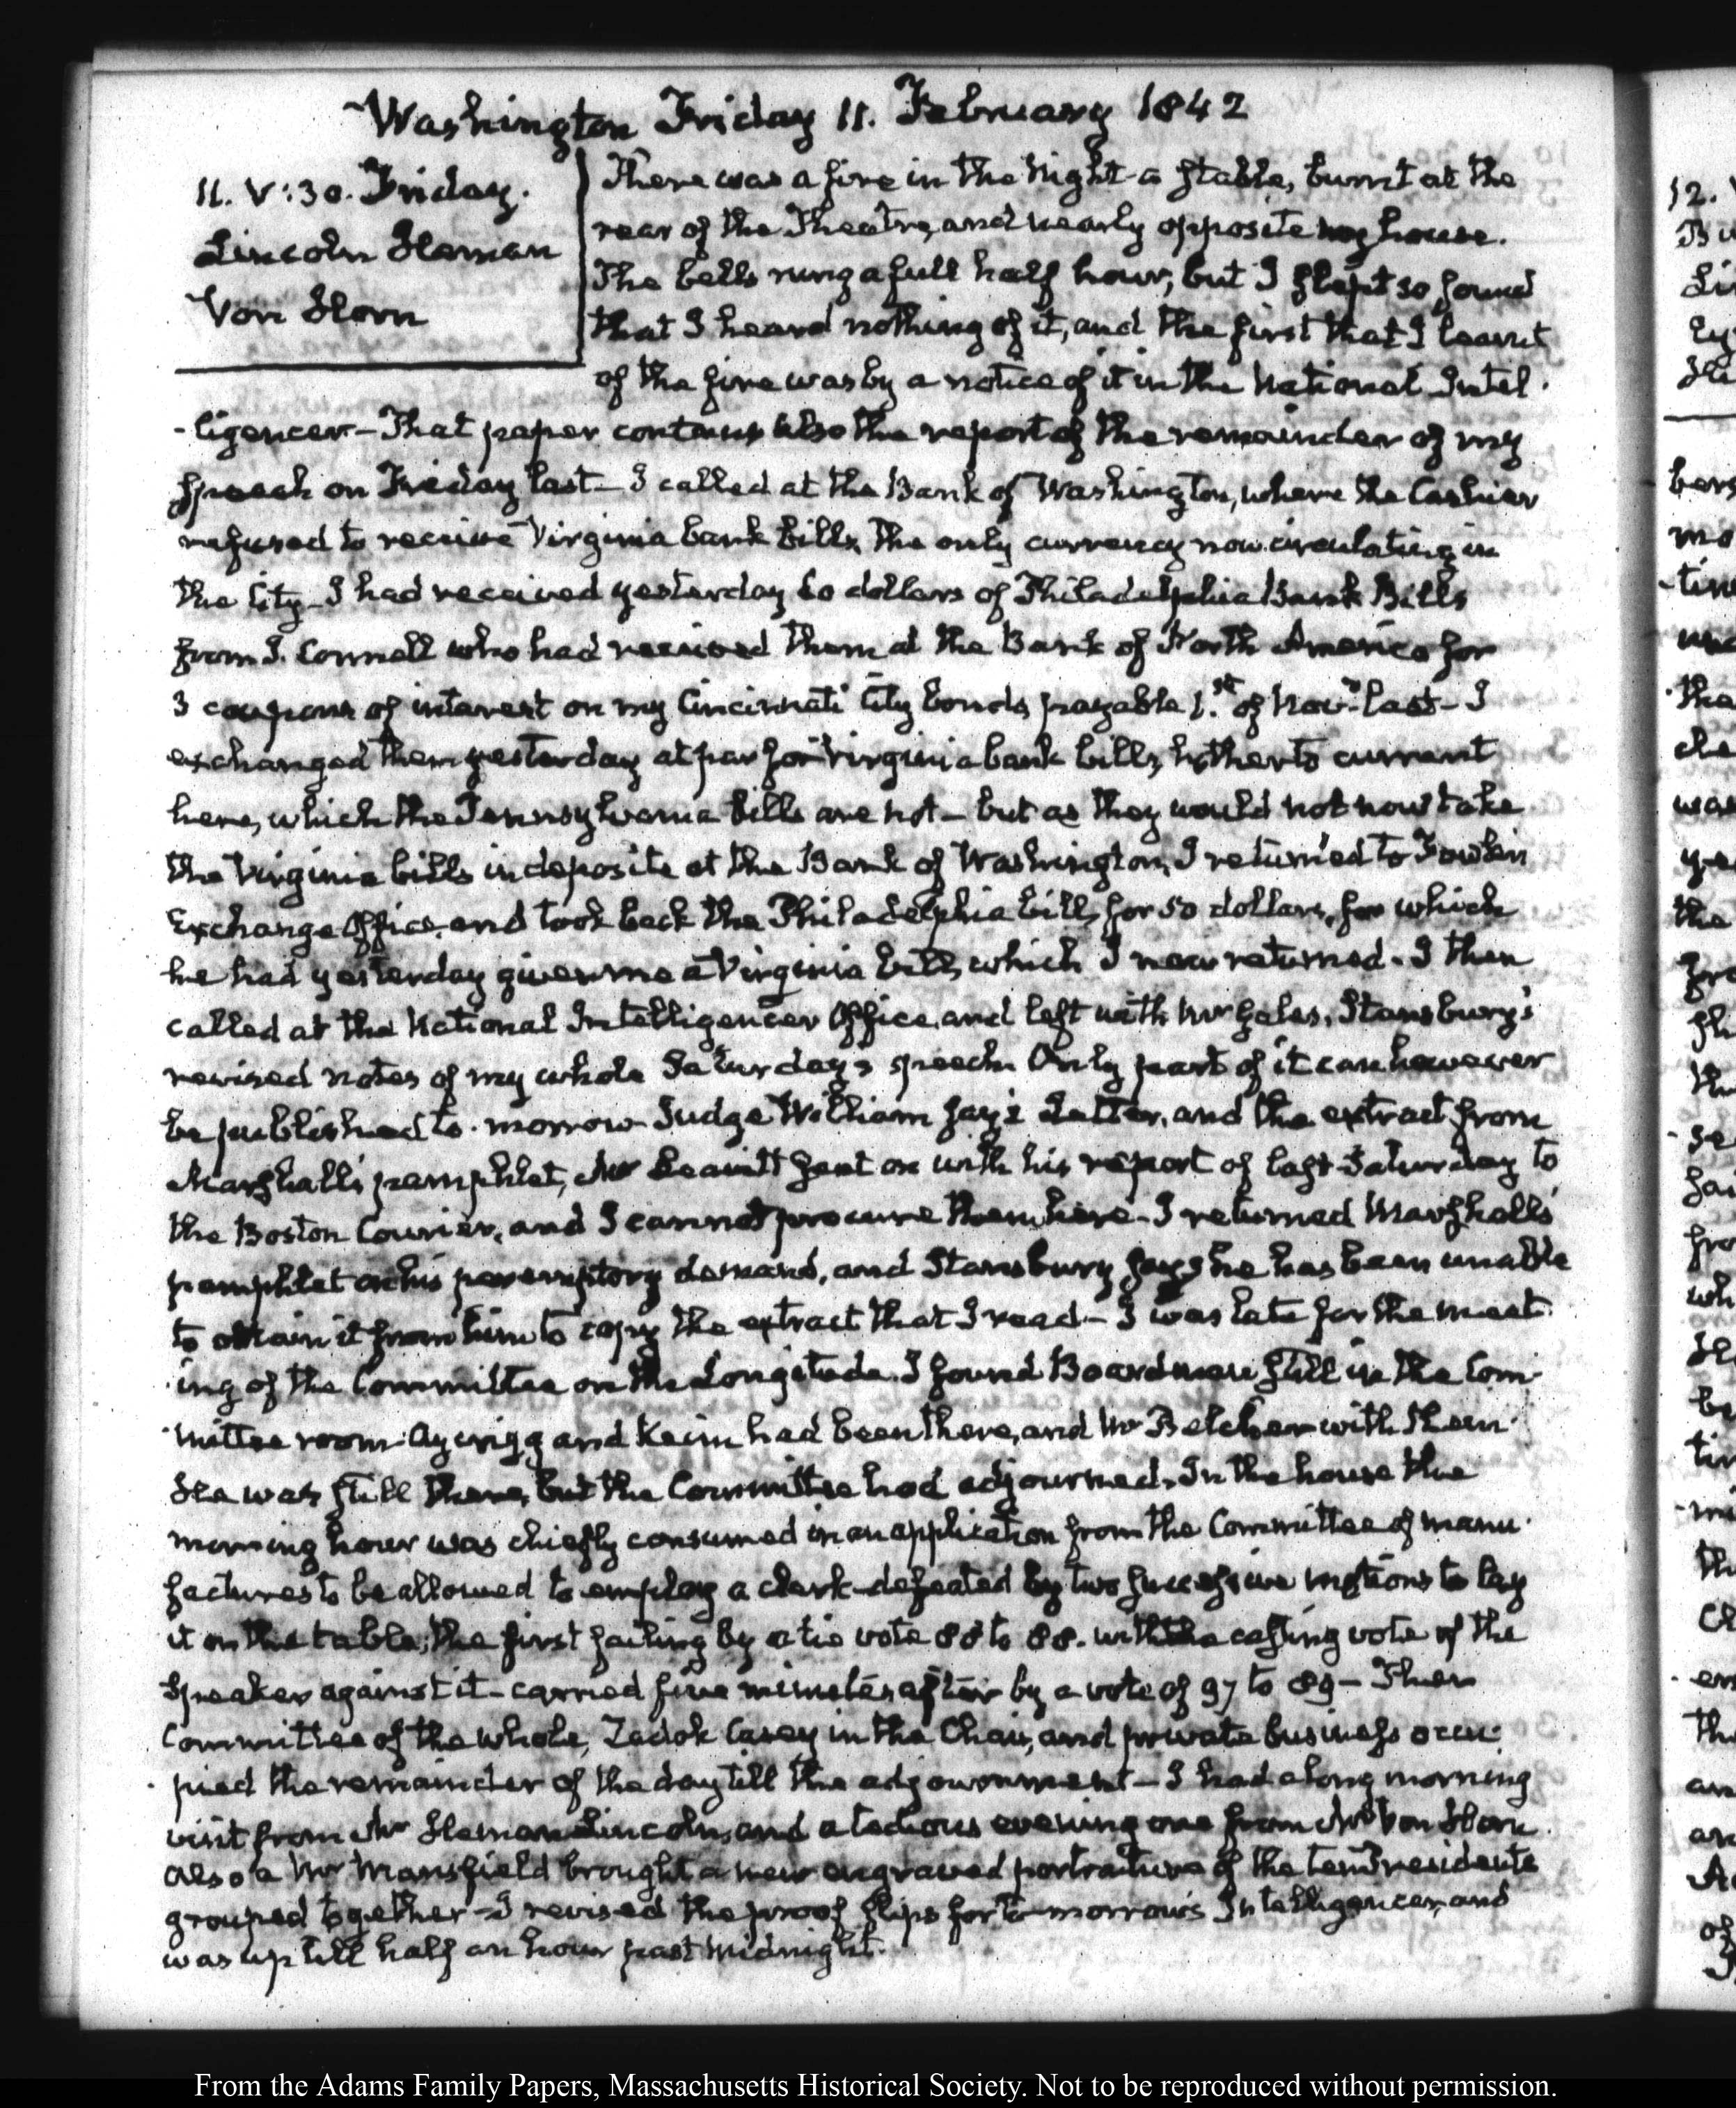 Washington Friday 11. February 1842
11. V:30. Friday.
Lincoln Heman
Von Horn
There was a fire in the Night a stable, burnt at the
rear of the Theatre, and nearly opposite my house.
The bells rung a full half hour, but I slept so sound
that I heard nothing of it, and the first that I learnt
of the fire was by a notice of it in the National Intel-
-ligencer – That paper contains also the report of the remainder of my
speech on Friday last – I called at the Bank of Washington, where the Cashier
refused to receive Virginia bank bills, the only currency now circulating in
the City – I had received yesterday 60 dollars of Philadelphia Bank Bills
from J. Connell who had received them at the Bank of North America for
3 coupons of interest on my Cincinnati City bonds, payable 1.st of Novr. last – I
exchanged them yesterday at par for Virginia bank bills, hitherto current
here, which the Pennsylvania bills are not – but as they would not now take
the Virginia bills in deposite at the Bank of Washington, I returned to
Exchange Office, and took back the Philadelphia bill, for 50 dollars, for which
he had yesterday given me a Virginia bill, which I now returned – I then
called at the National Intelligencer Office, and left with Mr Gales, Stansbury's
revised notes of my whole Saturday's speech. Only part of it can however
be published to-morrow Judge William Jay's Letter, and the extract from
Marshall's pamphlet, Mr Leavitt sent on with his report of last Saturday to
the Boston Courier, and I cannot procure them here – I returned Marshall's
pamphlet on his peremptory demand, and Stansbury says he has been unable
to obtain it from him to copy the extract that I read – I was late for the meet-
-ing of the Committee on the Longitude. I found Boardman still in the Com-
-mittee room – Aycrigg and Keim had been there, and Mr Belcher with them
He was still there, but the Committee had adjourned. In the house the
morning hour was chiefly consumed in an application from the Committee of manu-
factures to be allowed to employ a clerk – defeated by two successive motions to lay
it on the table; the first failing by a tie vote 88 to 88. with the casting vote of the
Speaker against it – carried five minutes after by a vote of 97 to 89 – Then
Committee of the whole, Zadok Casey in the Chair, and private business occu-
-pied the remainder of the day till the adjournment – I had a long morning
visit from Mr Heman Lincoln, and a tedious evening one from Mr Von Horn.
also a Mr Mansfield brought a new engraved portraiture of the ten Presidents
grouped together – I revised the proof slips for to-morrow's Intelligencer, and
was up till half an hour past Midnight.
From the Adams Family Papers, Massachusetts Historical Society. Not to be reproduced without permission.